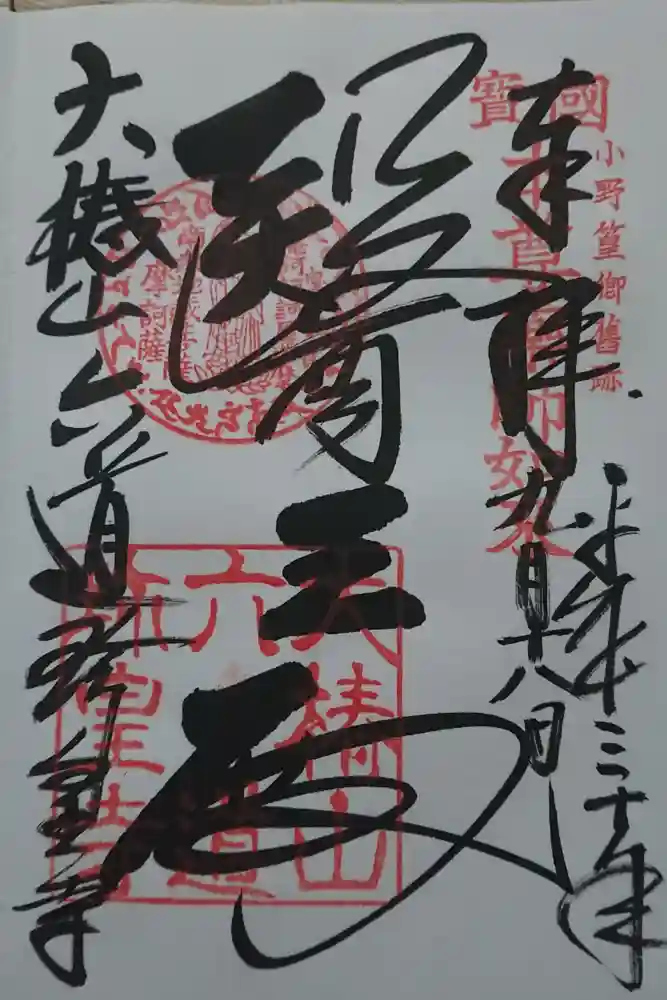 奉拝
平成三十年
九月十八日
醫王殿
大椿山六道珍皇寺
國寶
小野篁御舊跡
本尊薬師如来
摩訶薩
大椿山
六道
珍皇寺